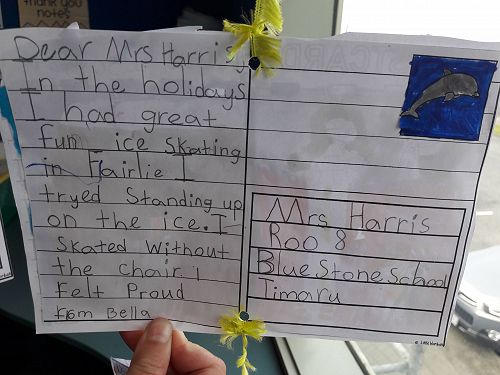 thank you
notes
Dear Mrs Harris
In the holidays
I had great
fun ice skating
in Fairlie I
tryed Standing up
on the ice. I
skated without
the chair I
felt Proud
from Bella
Mrs Harris
Roo 8
Blue Stone School
Timaru